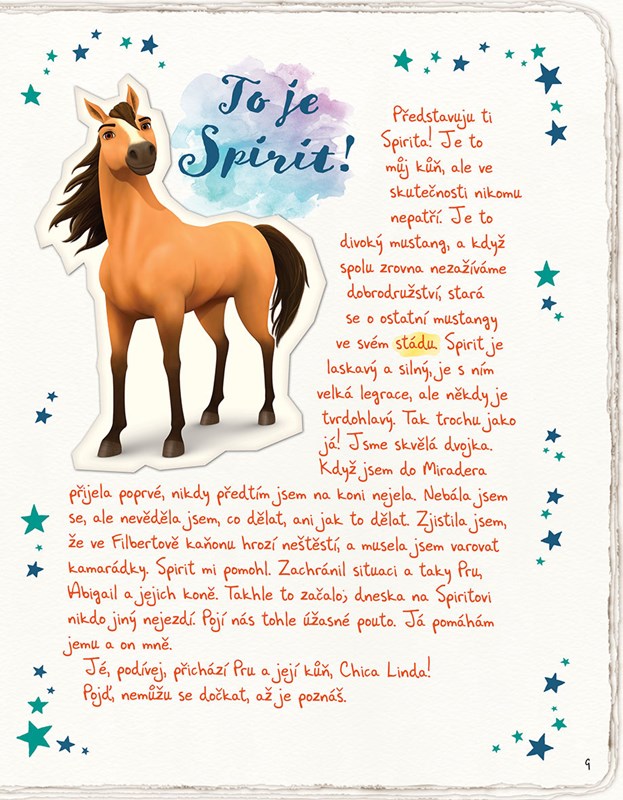 To je
Spirit!
Představuju ti
Spirita! Je to
můj kůň, ale ve
skutečnosti nikomu
nepatří. Je to
divoký mustang, a když
spolu zrovna nezažíváme
dobrodružství, stará
se o ostatní mustangy
ve svém stádu. Spirit je
laskavý a silný, je s ním
velká legrace, ale někdy je
tvrdohlavý. Tak trochu jako
já! Jsme skvělá dvojka.
Když jsem do Miradera
přijela poprvé, nikdy předtím jsem na koni nejela. Nebála jsem
se, ale nevěděla jsem, co dělat, ani jak to dělat. Zjistila jsem,
že ve Filbertově kaňonu hrozí neštěstí, a musela jsem varovat
kamarádky. Spirit mi pomohl. Zachránil situaci a taky Pru,
Abigail a jejich koně. Takhle to začalo; dneska na Spiritovi
nikdo jiný nejezdí. Pojí nás tohle úžasné pouto. Já pomáhám
jemu a on mně.
Jé, podívej, přichází Pru a její kůň, Chica Linda!
Pojď, nemůžu se dočkat, až je poznáš.
9